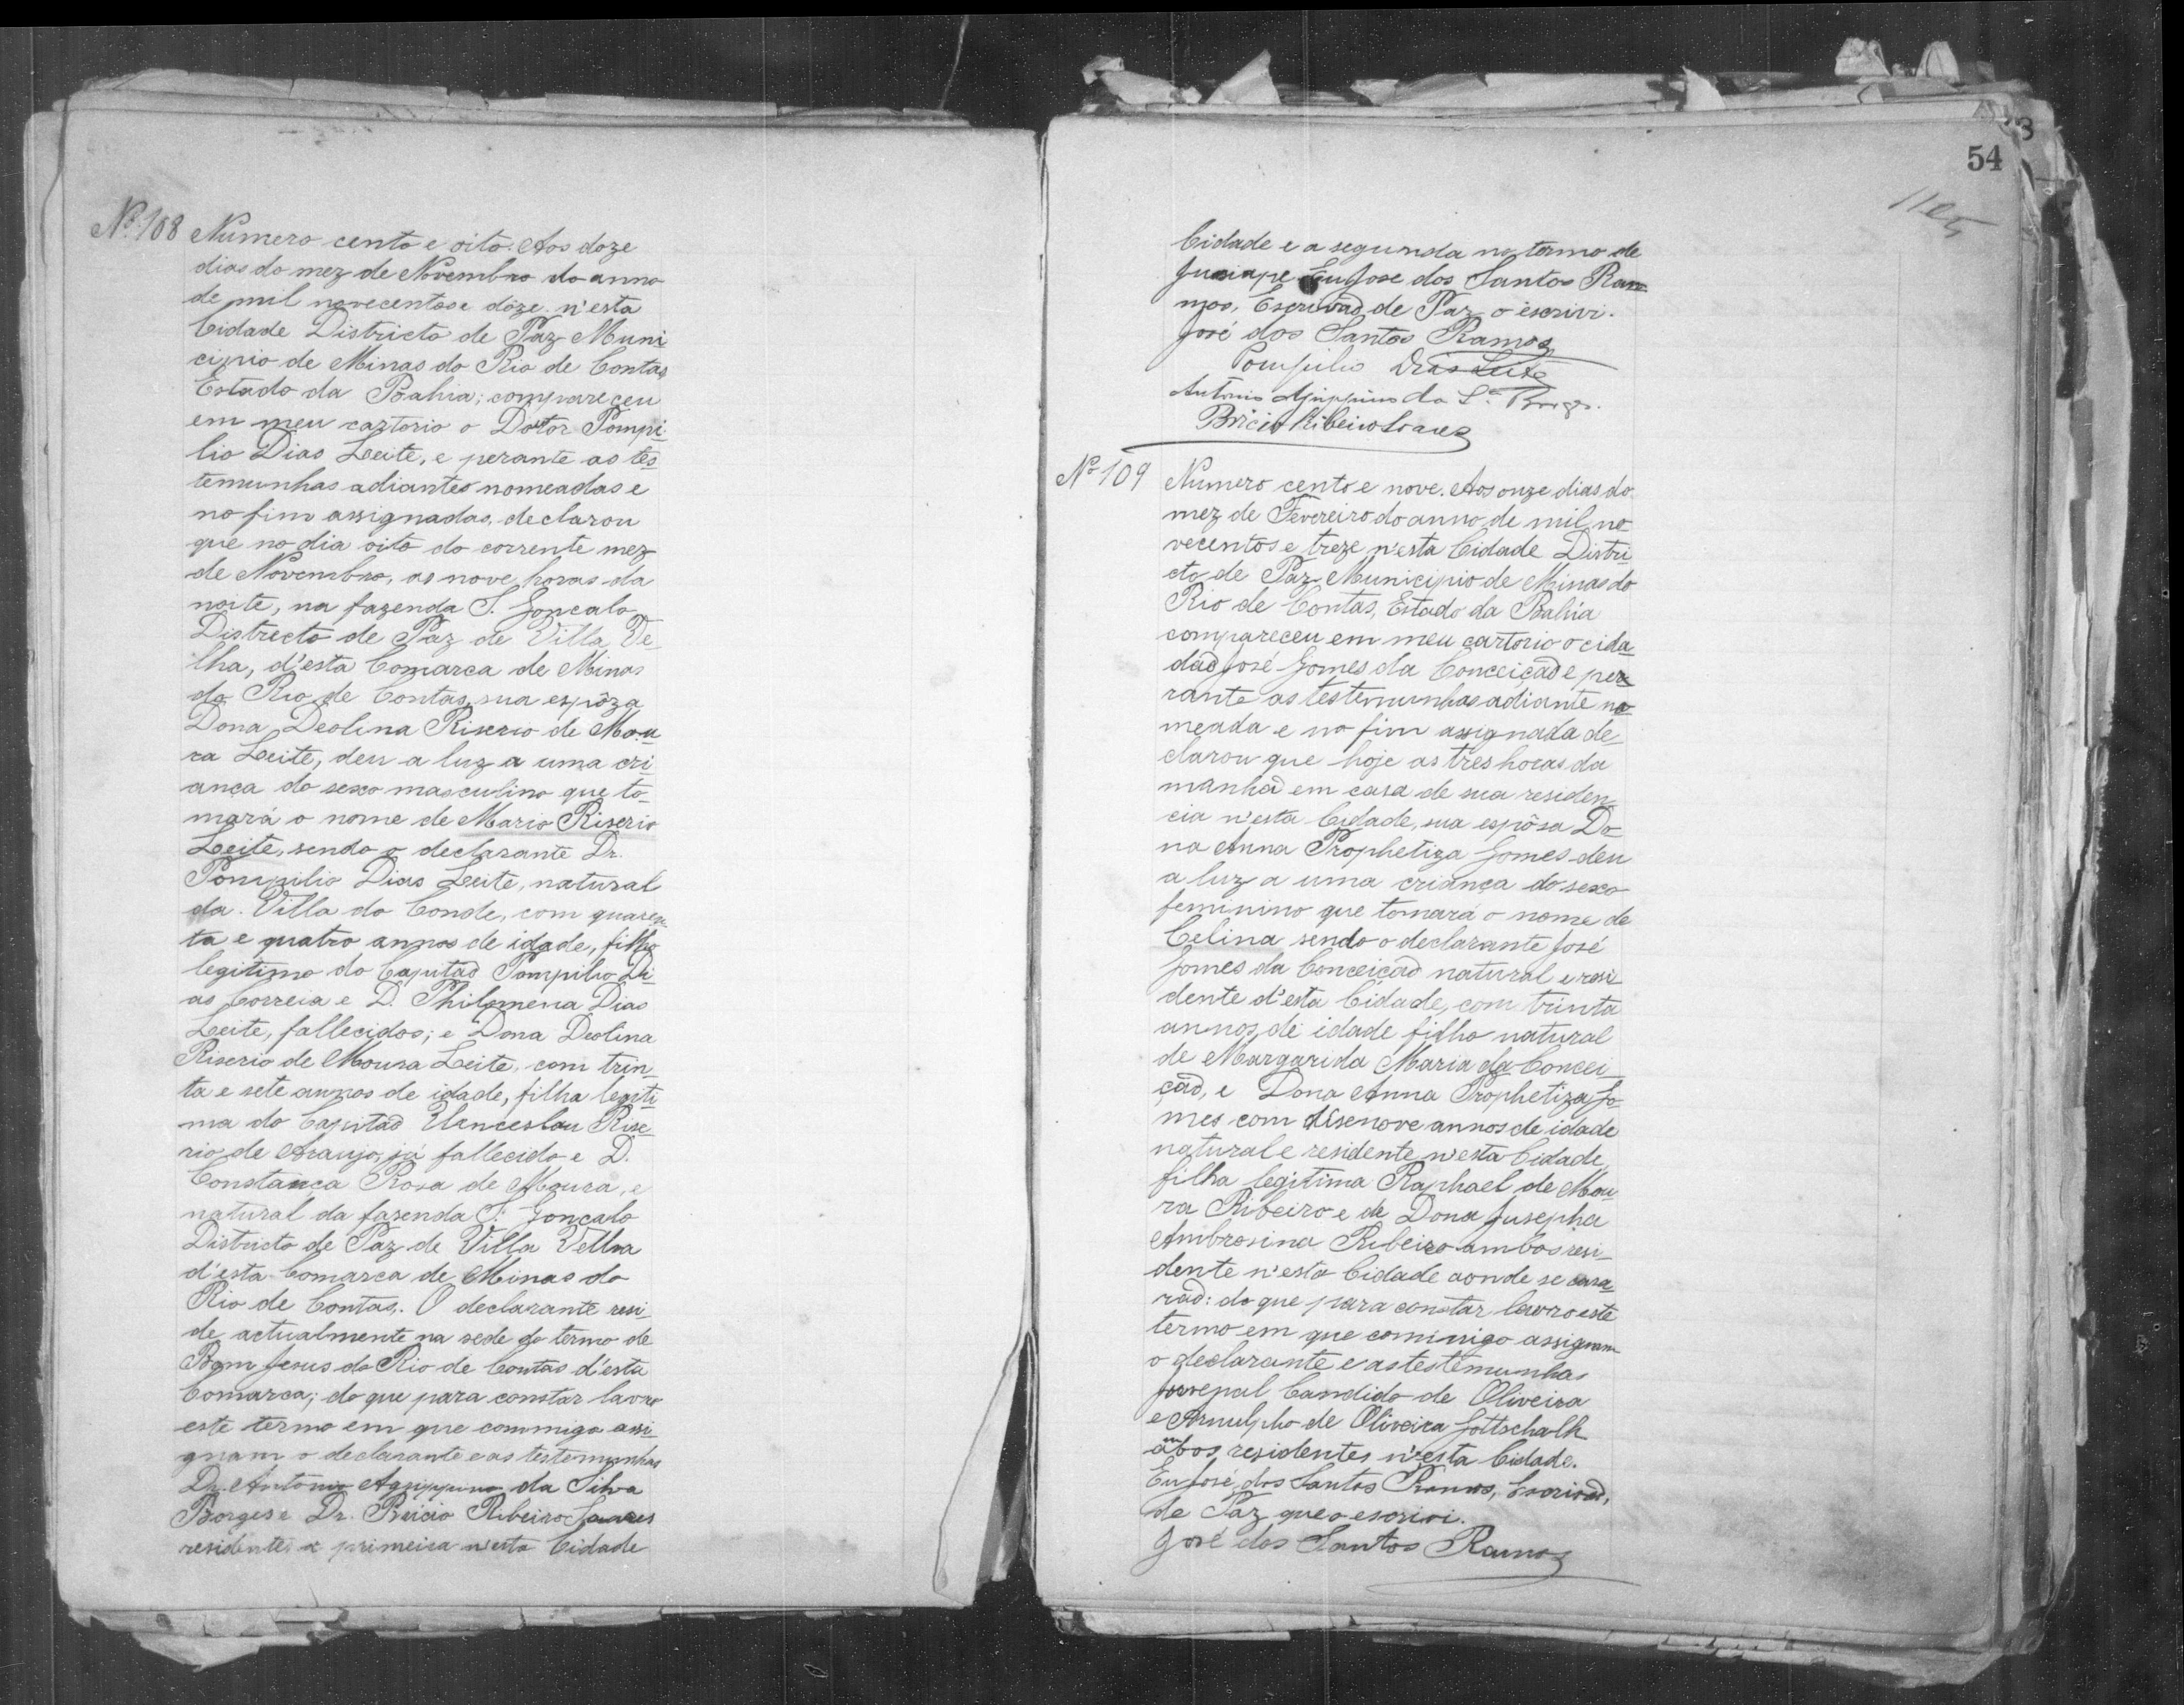 Nº 108 Numero cento e oito. Aos doze
dias do mez de Novembro do anno
de mil novecentos e doze. n'esta
Cidade Districto de Paz Muni-
cipio de Minas do Rio de Contas
Estado da Bahia; compareceu
em meu cartorio o Dotor Pompi-
lio Dias Leite, e perante as tes-
temunhas adiantes nomeadas e
no fim assignadas, declarou
que no dia oito do corrente mez
de Novembro, as nove horas da
noite, na fazenda S. Gonçalo
Districto de Paz de Villa Ve-
lha, d'esta Comarca de Minas
do Rio de Contas, sua espôza
Dona Deolina Riserio de Mou-
ra Leite, deu a luz a uma cri-
ança do sexo masculino que to-
mará o nome de Mario Riserio
Leite, sendo o declarante Dr.
Pompilio Dias Leite, natural
da Villa do Conde, com quaren-
ta e quatro annos de idade, filho
legitimo do Capitaõ Pompilio Di-
as Correia e D. Philomena Dias
Leite, fallecidos; e Dona Deolina
Riserio de Moura Leite, com trin-
ta e sete annos de idade, filha legiti-
ma do Capitaõ Wenceslau Rise-
rio de Araujo, já fallecido e D.
Constança Rosa de Moura, e
natural da fazenda S. Gonçalo
Districto de Paz de Villa Velha
d'esta Comarca de Minas do
Rio de Contas. O declarante resi-
de actualmente na sede do termo de
Bom Jesus do Rio de Contas d'esta
Comarca; do que para constar lavro
este termo em que commigo assi-
gnam o declarante e as testemunhas
Dr. Antonio Agrippino da Silva
Borges e Dr. Bricio Ribeiro Soares
residentes a primeira n'esta Cidade
54
Cidade e a segunda no termo de
Jussiape Eu Jose dos Santos Ra-
mos, Escrivaõ de Paz o escrivi.
José dos Santos Ramos
Pompilio Dias Leite
Antonio Agrippino da Sª Borges.
Bricio Ribeiro Soares
Nº 109 Numero cento e nove. Aos onze dias do
mez de Fevereiro do anno de mil no
vecentos e treze n'esta Cidade Distri-
cto de Paz Municipio de Minas do
Rio de Contas, Estado da Bahia
compareceu em meu cartorio o cida-
daõ José Gomes da Conceiçaõ e pe-
rante as testemunhas adiante no-
meada e no fim assignada de-
clarou que hoje as três horas da
manhaõ em casa de sua residen-
cia n'esta Cidade, sua espôsa Do-
na Anna Prophetiza Gomes deu
a luz a uma criança do sexo
feminino que tomará o nome de
Celina sendo o declarante José
Gomes da Conceiçaõ natural e resi-
dente d'esta Cidade, com trinta
annos de idade filho natural
de Margarida Maria da Concei-
çaõ, e Dona Anna Prophetiza Go-
mes com disenove annos de idade
natural e residente n'esta Cidade,
filha legitima Raphael de Mou-
ra Ribeiro e de Dona Jusepha
Ambrosina Ribeiro ambos resi-
dente n'esta Cidade aonde se casa-
raõ: do que para constar lavro este
termo em que commigo assignam
o declarante e as testemunhas
Candido de Oliveira
e Arnulpho de Oliveira Gottschalk
ambos residentes n'esta Cidade.
Eu José dos Santos Ramos, Escrivaõ,
de Paz que o escrivi.
José dos Santos Ramos